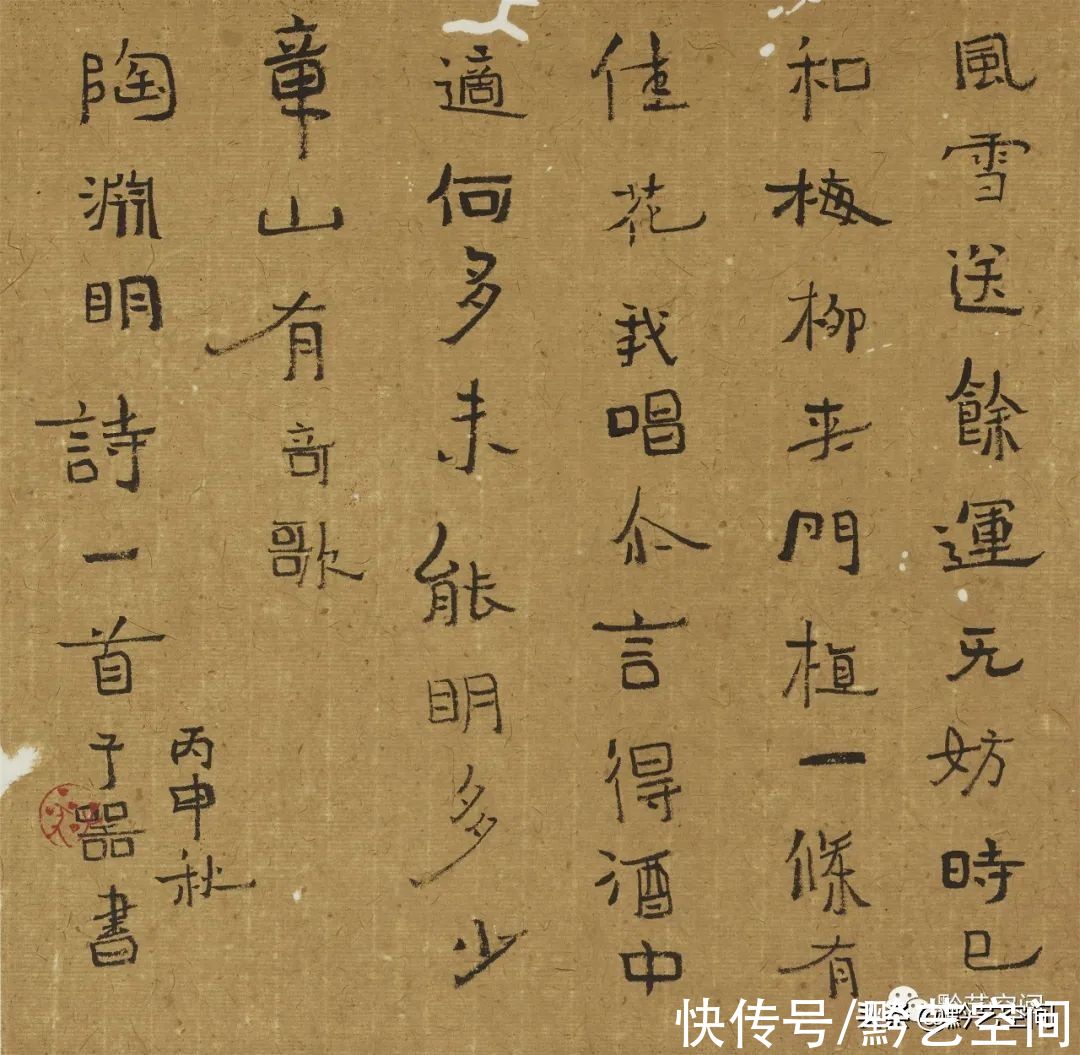 風雪送餘運无妨時已
和梅柳夾門植一條有
佳花我唱尒言得酒中
適何多未能明多少
章山有奇歌
陶淵明詩一首子器書
丙申秋
黔艺空间
快传号/黔艺空间